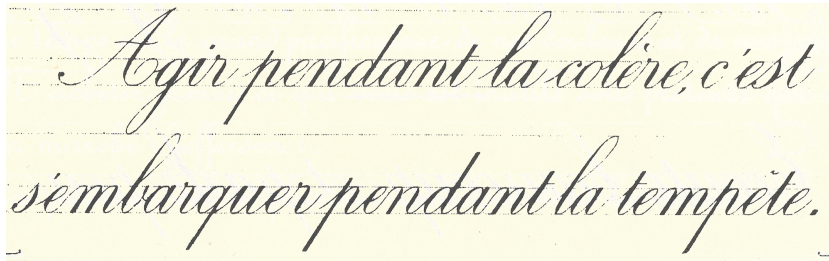 Agir pendant la colère, c'est
s'embarquer pendant la tempête.